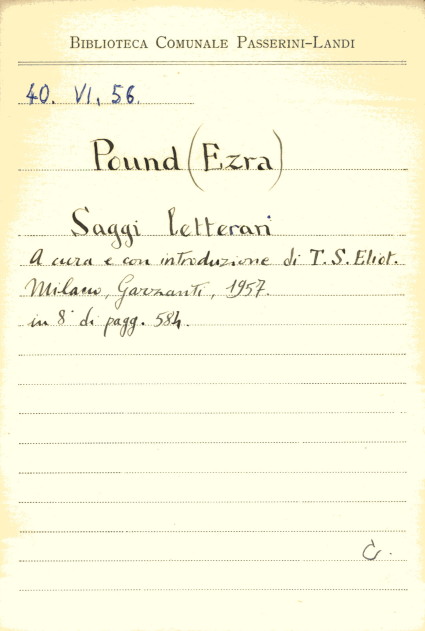 BIBLIOTECA COMUNALE PASSERINI-LANDI
40. VI, 56.
Pound (Ezra)
Saggi letterari
A cura e con introduzione di T. S. Eliot.
Milano, Garzanti, 1957.
in 8° di pagg. 584.